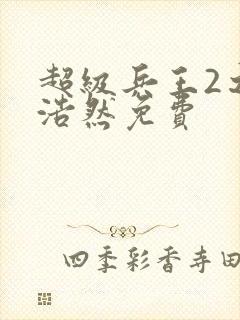 超级兵王2
浩然免费
四季彩香寺田